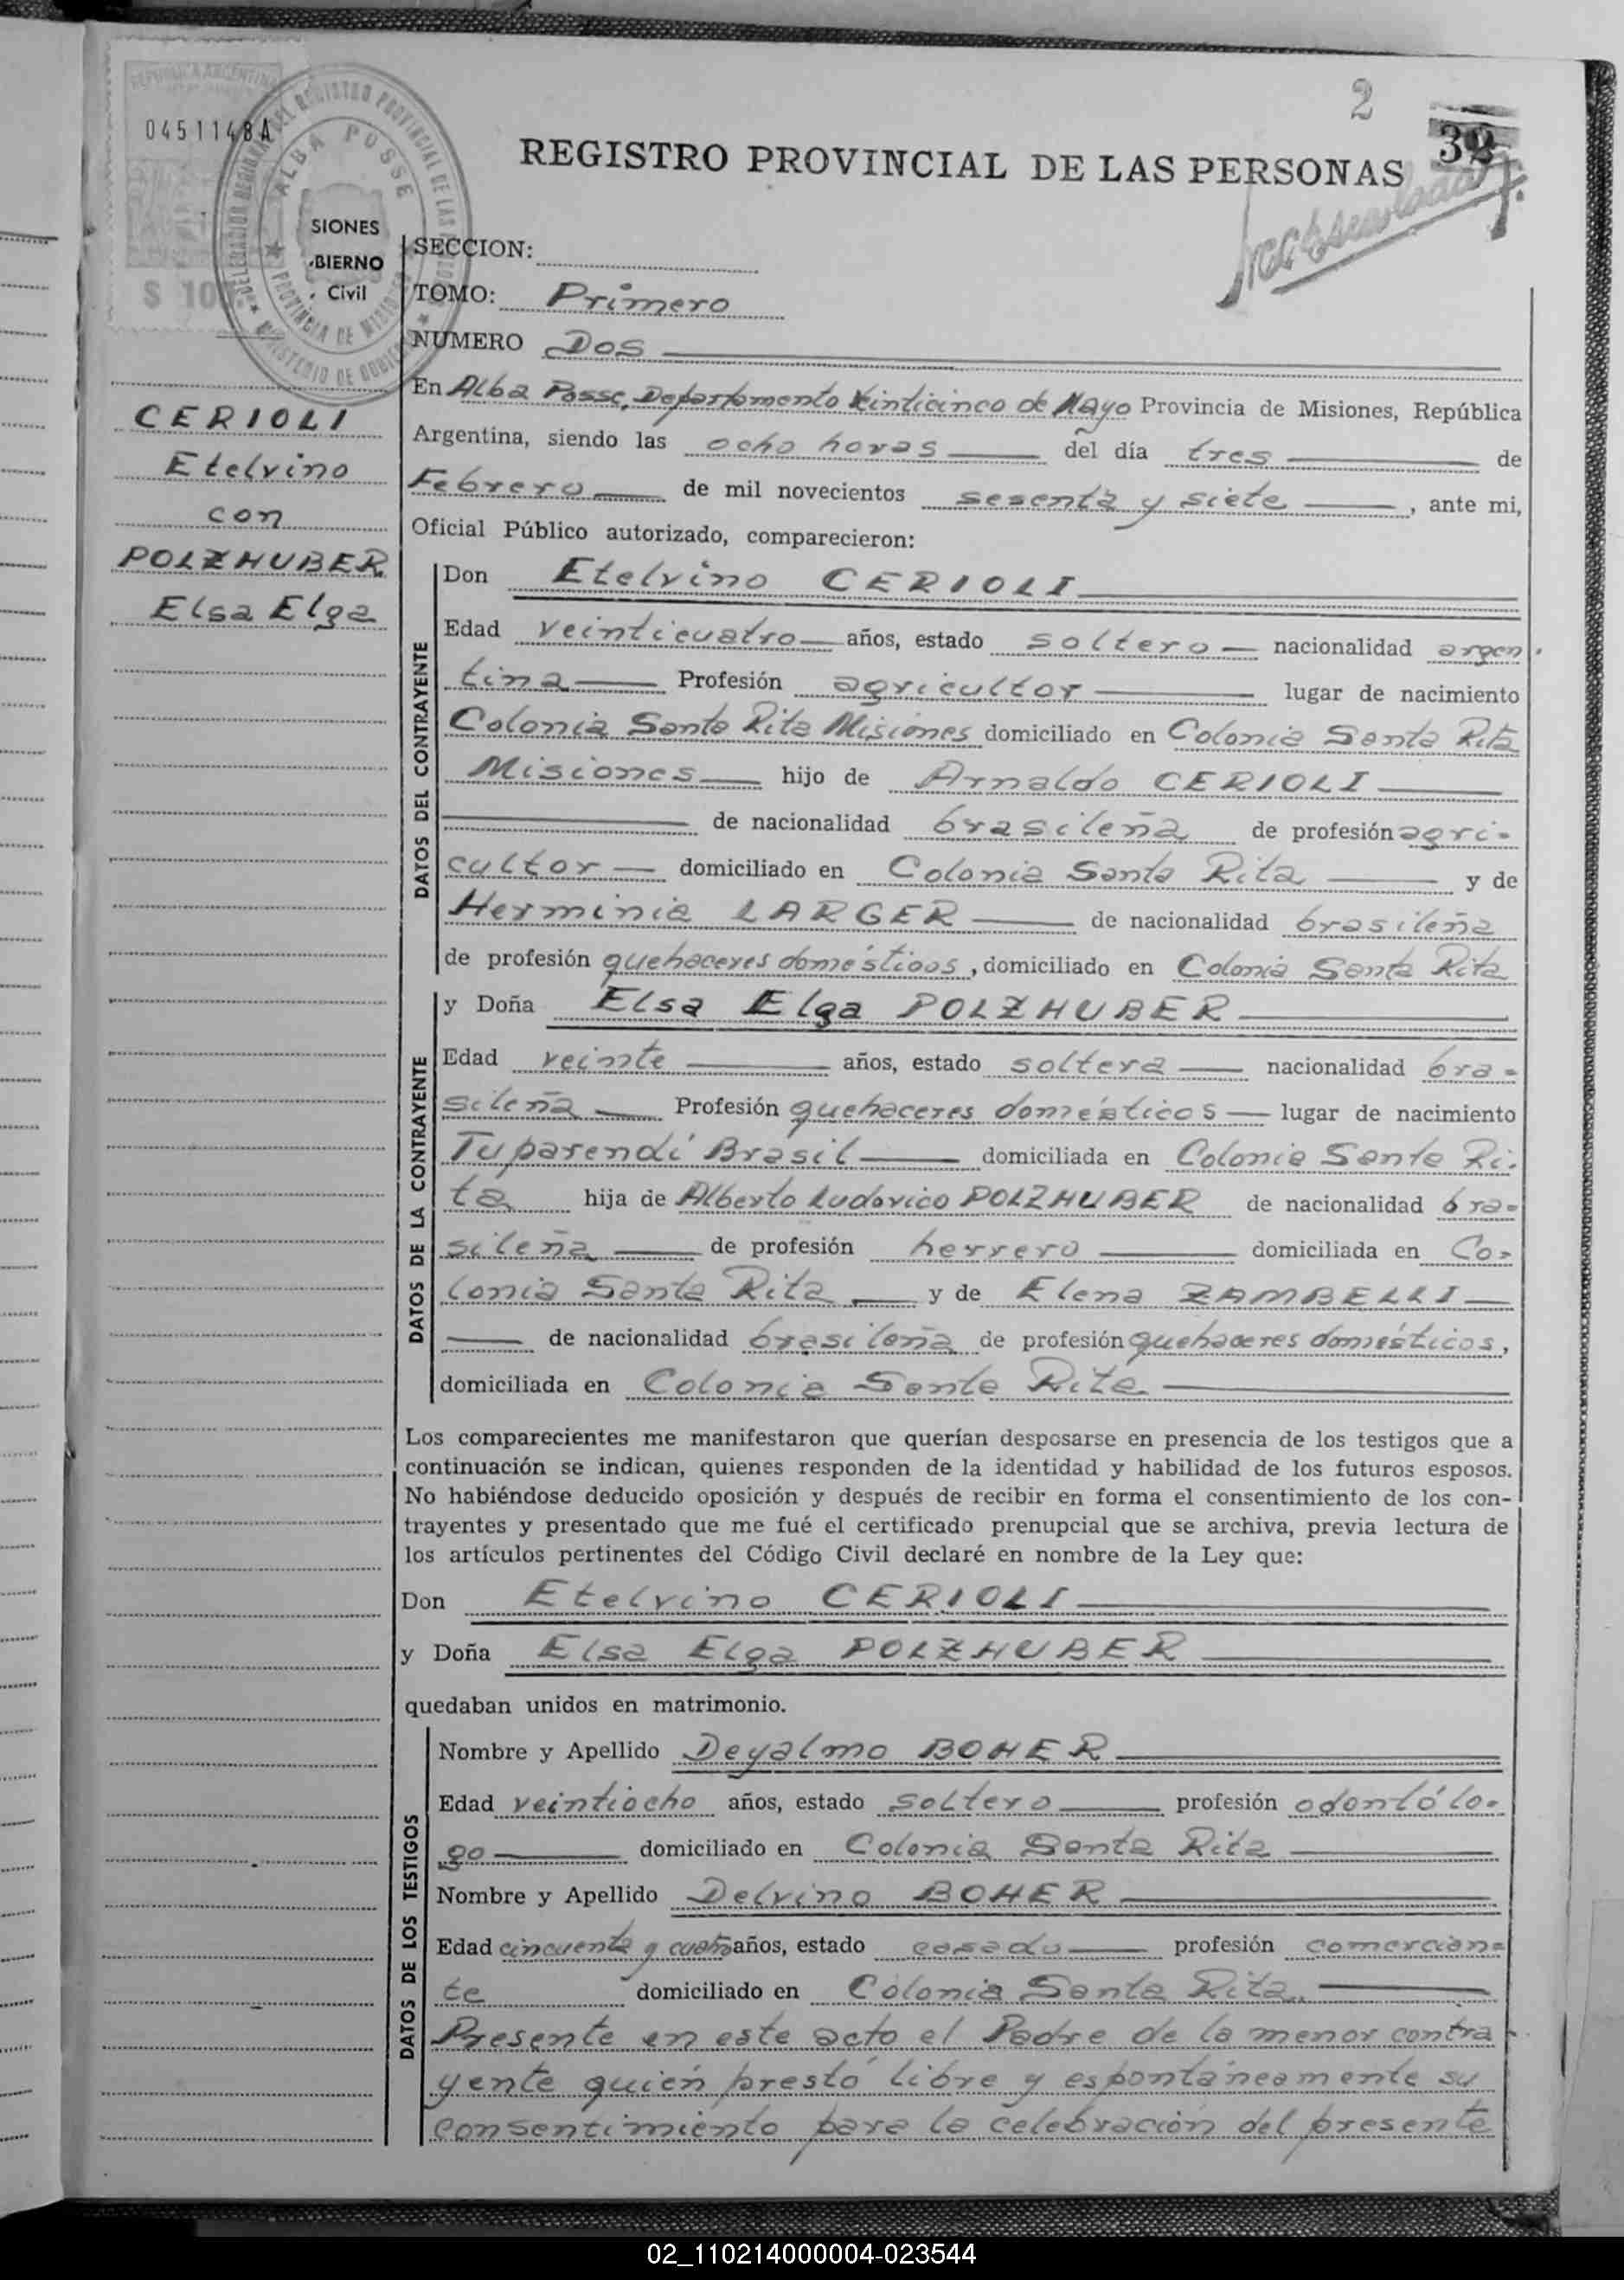 2
32
REPUBLICA ARGENTINA
0451148A
DELEGACION REGISTRO PROVINCIAL DE LAS
ALBA POSSE
PROVINCIA DE MISIONES
MINISTERIO DE GOBIERNO
$ 10
REGISTRO PROVINCIAL DE LAS PERSONAS
SIONES
BIERNO
Civil
SECCION:
TOMO: Primero
NUMERO Dos
CERIOLI
Etelvino
con
POLZHUBER
Elsa Elga
En Alba Posse, Departamento Veinticinco de Mayo Provincia de Misiones, República
Argentina, siendo las ocho horas del día tres de
Febrero de mil novecientos sesenta y siete, ante mi,
Oficial Público autorizado, comparecieron:
DATOS DEL CONTRAYENTE
Don Etelvino CERIOLI
Edad veinticuatro años, estado soltero nacionalidad argen-
tina Profesión agricultor lugar de nacimiento
Colonia Santa Rita Misiones domiciliado en Colonia Santa Rita
Misiones hijo de Arnaldo CERIOLI
de nacionalidad brasileña de profesión agri-
cultor domiciliado en Colonia Santa Rita y de
Herminia LARGER de nacionalidad brasileña
de profesión quehaceres domésticos, domiciliado en Colonia Santa Rita
DATOS DE LA CONTRAYENTE
y Doña Elsa Elga POLZHUBER
Edad veinte años, estado soltera nacionalidad bra-
sileña Profesión quehaceres domésticos lugar de nacimiento
Tuparendí Brasil domiciliada en Colonia Santa Ri-
ta hija de Alberto Ludovico POLZHUBER de nacionalidad bra-
sileña de profesión herrero domiciliada en Co-
lonia Santa Rita y de Elena ZAMBELLI
de nacionalidad brasileña de profesión quehaceres domésticos,
domiciliada en Colonia Santa Rita
Los comparecientes me manifestaron que querían desposarse en presencia de los testigos que a
continuación se indican, quienes responden de la identidad y habilidad de los futuros esposos.
No habiéndose deducido oposición y después de recibir en forma el consentimiento de los con-
trayentes y presentado que me fué el certificado prenupcial que se archiva, previa lectura de
los artículos pertinentes del Código Civil declaré en nombre de la Ley que:
Don Etelvino CERIOLI
y Doña Elsa Elga POLZHUBER
quedaban unidos en matrimonio.
DATOS DE LOS TESTIGOS
Nombre y Apellido Deyalmo BOHER
Edad veintiocho años, estado soltero profesión odontólo-
go domiciliado en Colonia Santa Rita
Nombre y Apellido Delvino BOHER
Edad cincuenta y cuatro años, estado casado profesión comercian-
te domiciliado en Colonia Santa Rita.
Presente en este acto el Padre de la menor contra-
yente quién prestó libre y espontáneamente su
consentimiento para la celebración del presente
02_110214000004-023544